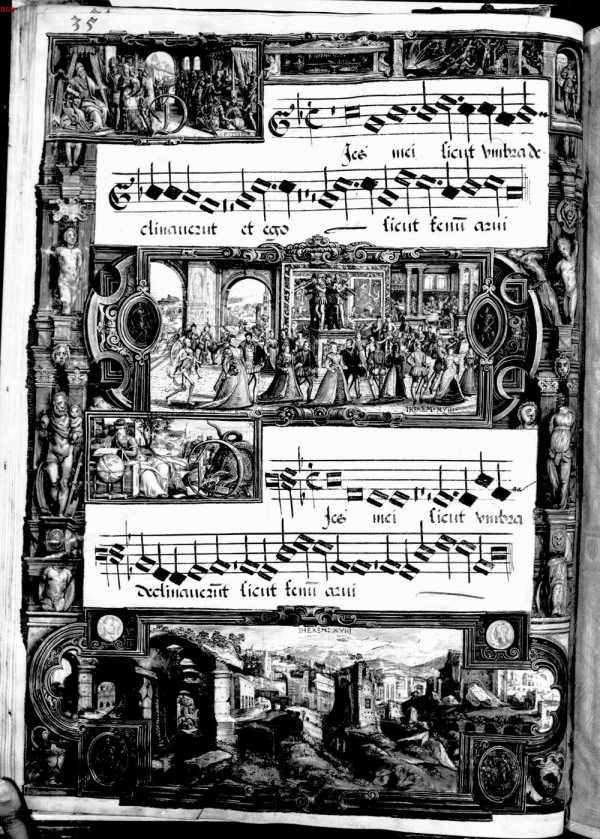 35
Ies mei sicut vmbra de
clinauerūt et ego sicut fenū arui
IHEREM·XVIII
Ies mei sicut vmbra
declinauerūt sicut fenū arui
IHEREM·XVIII